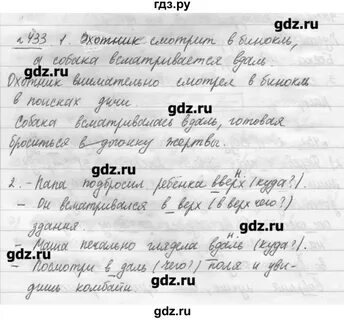 gdz.ru
№433 1. Охотник смотрит в бинокль,
gdz.ru gdz.ru
а собака всматривается вдаль.
Охотник внимательно смотрел в бинокль
в поисках дичи.
gdz.ru gdz.ru
Собака всматривалась вдаль, готовая
броситься в догонку жертвы.
gdz.ru gdz.ru
2. - Папа подбросил ребенка вверх (куда?). н
- Он всматривался в верх (в верх чего?)
gdz.ru gdz.ru
здания.
- Маша печально глядела вдаль (куда?). н
- Посмотри в даль (чего?) поля и уви-
дишь комбайн.
gdz.ru gdz.ru